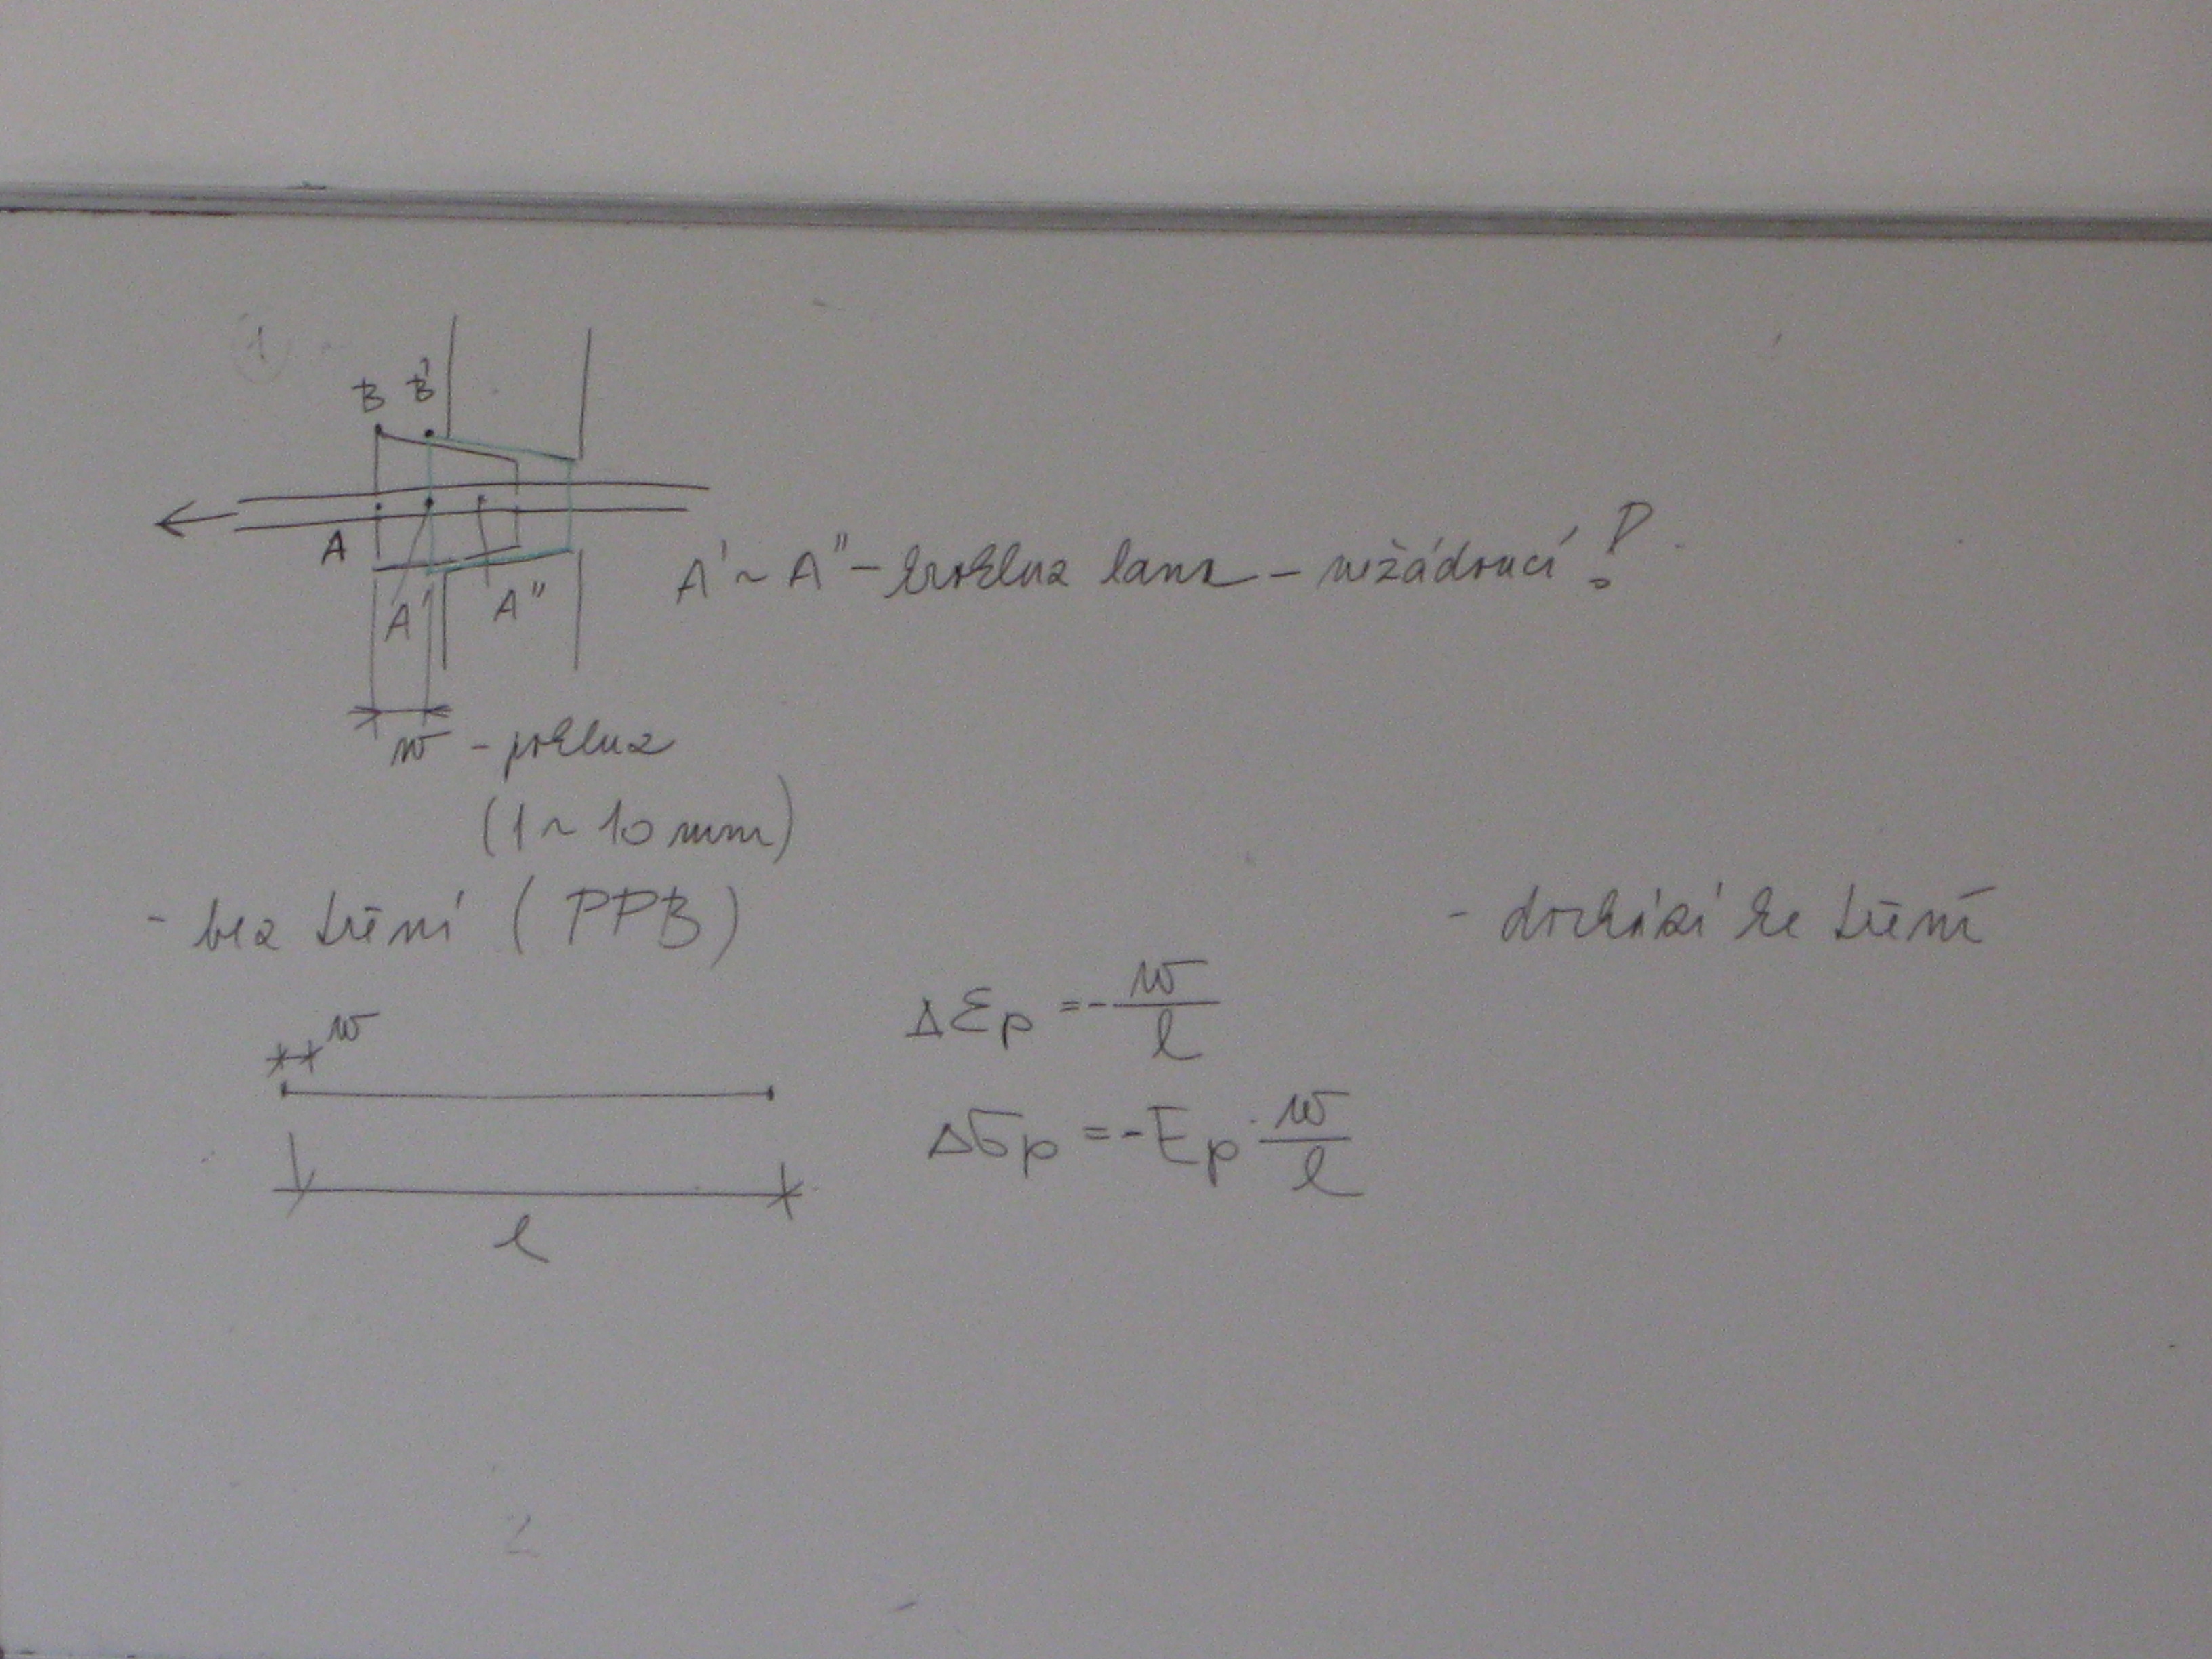 1
B B'
A
A' A"
A' ~ A" - prokluz lana - nežádoucí !
w - pokluz
(1 ~ 10 mm)
- bez tření (PPB)
- dochází ke tření
w
l
Δεp = - w/l
Δσp = - Ep · w/l
2